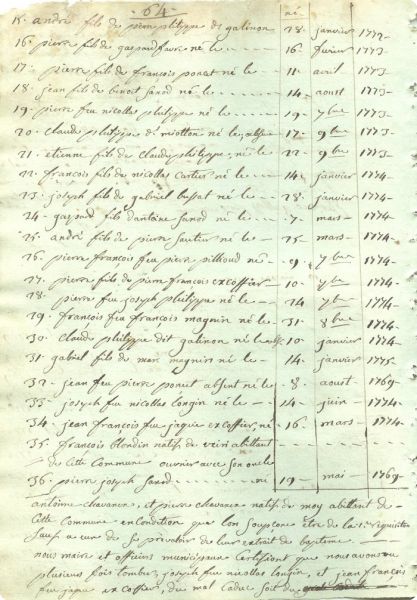 64
né
15. andré fils de pierre philippe dit galinon 28 janvier 1773
16. pierre fils de gaspard favre né le 16 fevrier 1773
17. pierre fils de françois poncet né le 11 avril 1773
18. jean fils de benoit sarod né le 14 aoust 1773
19. pierre feu nicollas philippe né le 19 7bre 1773
20. Claude philippe dit miotton né le, absent 17 9bre 1773
21. etienne fils de Claude philippe, né le 22 9bre 1773
22. françois fils de nicollas cartier né le 14 janvier 1774
23. joseph fils de gabriel bussat né le 28 janvier 1774
24. gaspard fils dantoine sarod né le 7 mars 1774
25. andré fils de pierre sautier né le 25 mars 1774
26. pierre françois feu pierre pilloud né 9 7bre 1774
27. pierre fils de pierre françois excoffier 10 7bre 1774
28. pierre feu joseph philippe né le 24 7bre 1774
29. françois feu françois magnin né le 31 8bre 1774
30. Claude philippe dit galinon né le 10 janvier 1774
31 gabriel fils de marc magnin né le 14 janvier 1775
32. jean feu pierre poncet absent né le 8 aoust 1769
33. joseph feu nicollas longin né le 14 juin 1774
34. jean françois feu jaque excoffier, né 16 mars 1774
35. françois blondin natif de abittant
de Cette Commune ouvrier avec son oncle
36. pierre joseph sarod ne 19 mai 1769
antoine chavanne, et pierre chavanne natif de moy abittent de
Cette Commune en Condition que lon soupçonne être de la 1re requisition
Sauf a eux de se prevaloir de leur extrait de bapteme
nous maire et officiers municipaux Certifiont que nous avons vu
plusieurs fois tomber joseph feu nicollas longin, et jean françois
feu jaque excoffier, du mal Caduc soit du